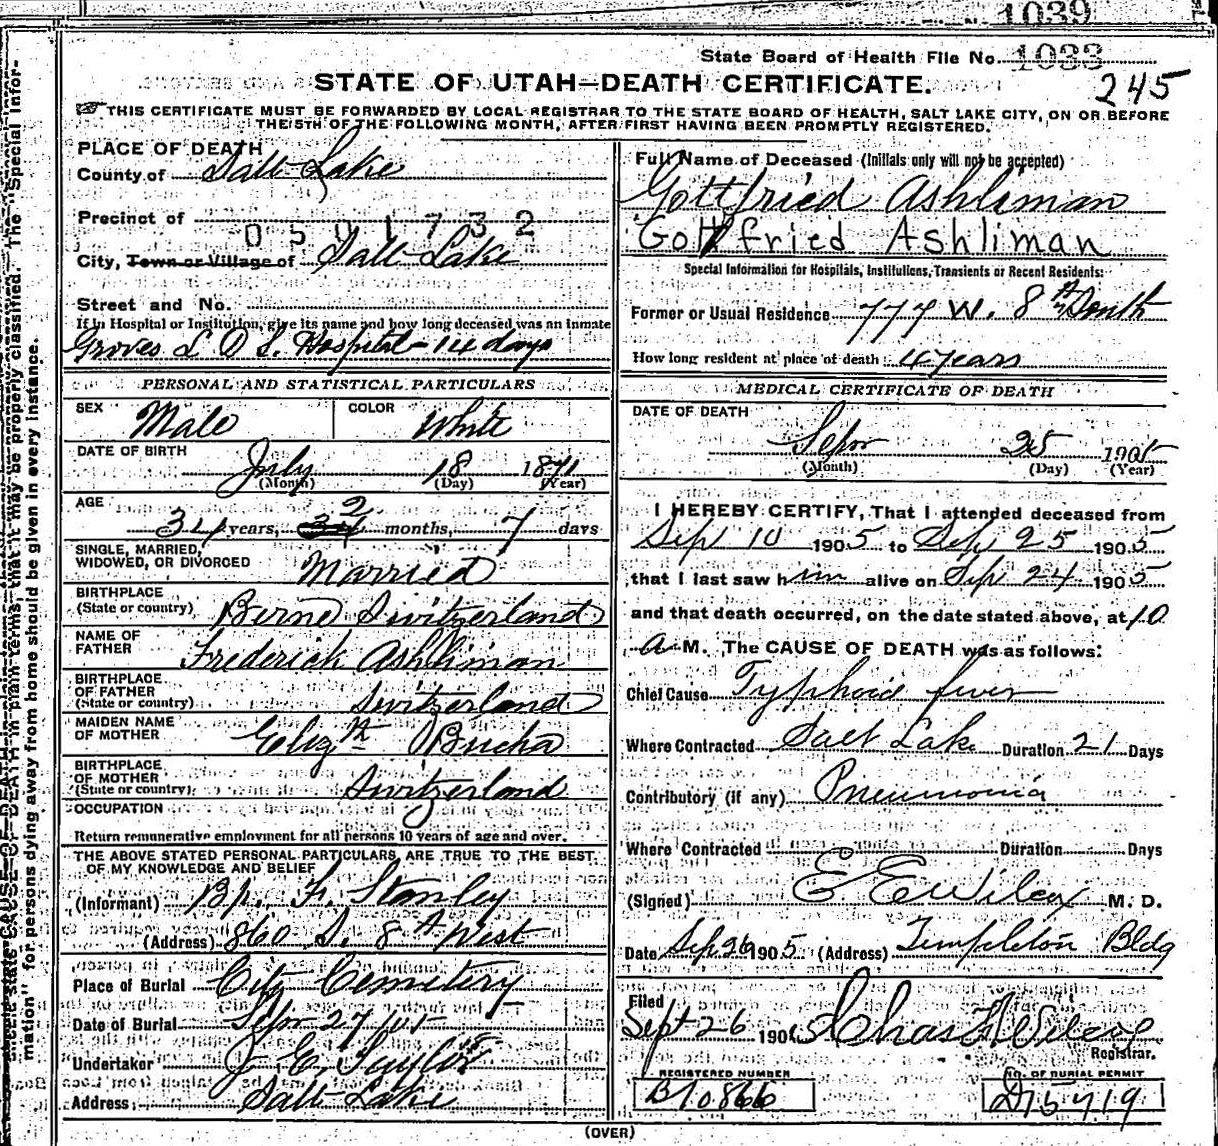 1039
State Board of Health File No. 1033
STATE OF UTAH—DEATH CERTIFICATE.
245
THIS CERTIFICATE MUST BE FORWARDED BY LOCAL REGISTRAR TO THE STATE BOARD OF HEALTH, SALT LAKE CITY, ON OR BEFORE
THE 5TH OF THE FOLLOWING MONTH, AFTER FIRST HAVING BEEN PROMPTLY REGISTERED.
PLACE OF DEATH
County of Salt Lake
Precinct of
0501732
City, Town or Village of Salt Lake
Street and No.
If in Hospital or Institution, give its name and how long deceased was an inmate
Groves L D S. Hospital - 14 days
PERSONAL AND STATISTICAL PARTICULARS
SEX Male COLOR White
DATE OF BIRTH July 18 1871
(Month) (Day) (Year)
AGE 34 years, 2 months, 7 days
SINGLE, MARRIED,
WIDOWED, OR DIVORCED Married
BIRTHPLACE
(State or country) Berne Switzerland
NAME OF
FATHER Frederick Ashliman
BIRTHPLACE
OF FATHER
(State or country) Switzerland
MAIDEN NAME
OF MOTHER Elizth Bucha
BIRTHPLACE
OF MOTHER
(State or country) Switzerland
OCCUPATION
Return remunerative employment for all persons 10 years of age and over.
THE ABOVE STATED PERSONAL PARTICULARS ARE TRUE TO THE BEST
OF MY KNOWLEDGE AND BELIEF
(Informant) Bp. F. Stanley
(Address) 860 S. 8th West
Place of Burial City Cemetery
Date of Burial Sepr 27/05
Undertaker J. E. Taylor
Address: Salt Lake
Full Name of Deceased (Initials only will not be accepted)
Gottfried Ashliman
Gottfried Ashliman
Special Information for Hospitals, Institutions, Transients or Recent Residents:
Former or Usual Residence 777 W. 8th South
How long resident at place of death: 4 years
MEDICAL CERTIFICATE OF DEATH
DATE OF DEATH
Sepr 25 1905
(Month) (Day) (Year)
I HEREBY CERTIFY, That I attended deceased from
Sep 10 1905 to Sep 25 1905
that I last saw him alive on Sep 24 1905
and that death occurred, on the date stated above, at 10
a M. The CAUSE OF DEATH was as follows:
Chief Cause Typhoid fever
Where Contracted Salt Lake Duration 21 Days
Contributory (if any) Pneumonia
Where Contracted Duration Days
(Signed) E E Wilcox M. D.
Date Sep 26 1905 (Address) Templeton Bldg
Filed
Sept 26 1905 Chas F Wilcox
Registrar.
REGISTERED NUMBER
B10866
NO. OF BURIAL PERMIT
D15719
(OVER)